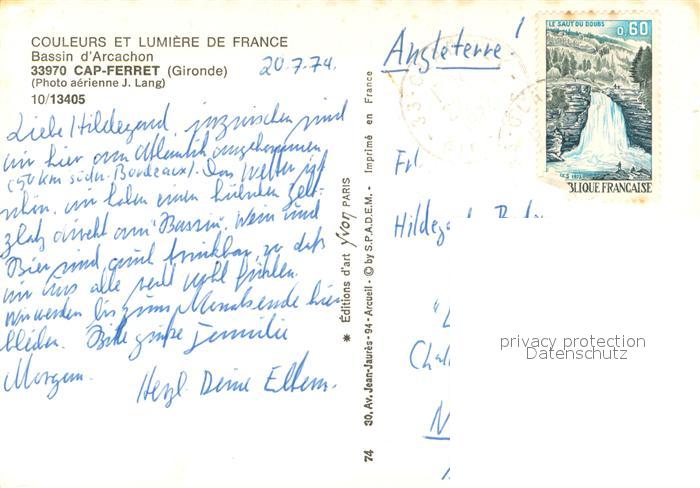 COULEURS ET LUMIÈRE DE FRANCE
Bassin d'Arcachon
33970 CAP-FERRET (Gironde)
(Photo aérienne J. Lang)
10/13405
20.7.74
Liebe Hildegard, inzwischen sind
wir hier am Atlantik angekommen
(50 km südw. Bordeaux). Das Wetter ist
schön, wir haben einen hübschen Zelt-
platz direkt am "Bassin". Wein und
Bier sind gut trinkbar, so daß
wir uns alle recht wohl fühlen.
Wir werden bis zum Monatsende hier
bleiben. Bitte grüße Familie
Morgan.
Herzl. Deine Eltern.
* Éditions d'art yvon PARIS
30, Av. Jean-Jaurès - 94 - Arcueil - © by S.P.A.D.E.M. - Imprimé en France
74
Angleterre!
LE SAUT DU DOUBS
0,60
BLIQUE FRANÇAISE
Frl.
privacy protection
Datenschutz